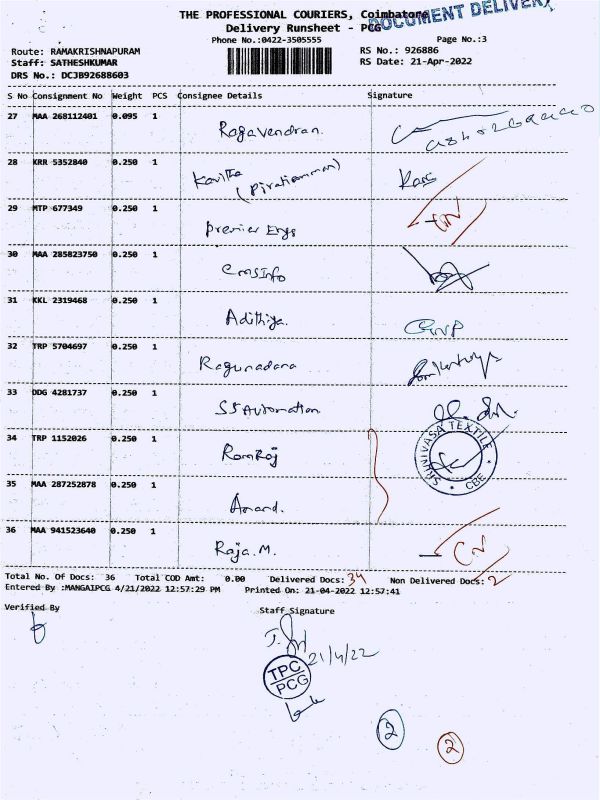 THE PROFESSIONAL COURIERS, Coimbatore
DOCUMENT DELIVERY
Delivery Runsheet - PCG
Phone No.:0422-3505555 Page No.:3
Route: RAMAKRISHNAPURAM RS No.: 926886
Staff: SATHESHKUMAR RS Date: 21-Apr-2022
DRS No.: DCJB92688603
S No Consignment No Weight PCS Consignee Details Signature
27 MAA 268112401 0.095 1 Ragavendran.
28 KRR 5352840 0.250 1 Kavitha
29 MTP 677349 0.250 1 Premier Engs
30 MAA 285823750 0.250 1 emsInfo
31 KKL 2319468 0.250 1 Adithiya.
32 TRP 5704697 0.250 1 Ragunadana
33 DDG 4281737 0.250 1 SS Automation
34 TRP 1152026 0.250 1 RamRaj
SRINIVASA TEXTILE
* CBE *
35 MAA 287252878 0.250 1 Anand.
36 MAA 941523640 0.250 1 Raja.M. CN
Total No. Of Docs: 36 Total COD Amt: 0.00 Delivered Docs: 34 Non Delivered Docs: 2
Entered By :MANGAIPCG 4/21/2022 12:57:29 PM Printed On: 21-04-2022 12:57:41
Verified By Staff Signature
21/4/22
TPC
PCG
2
2